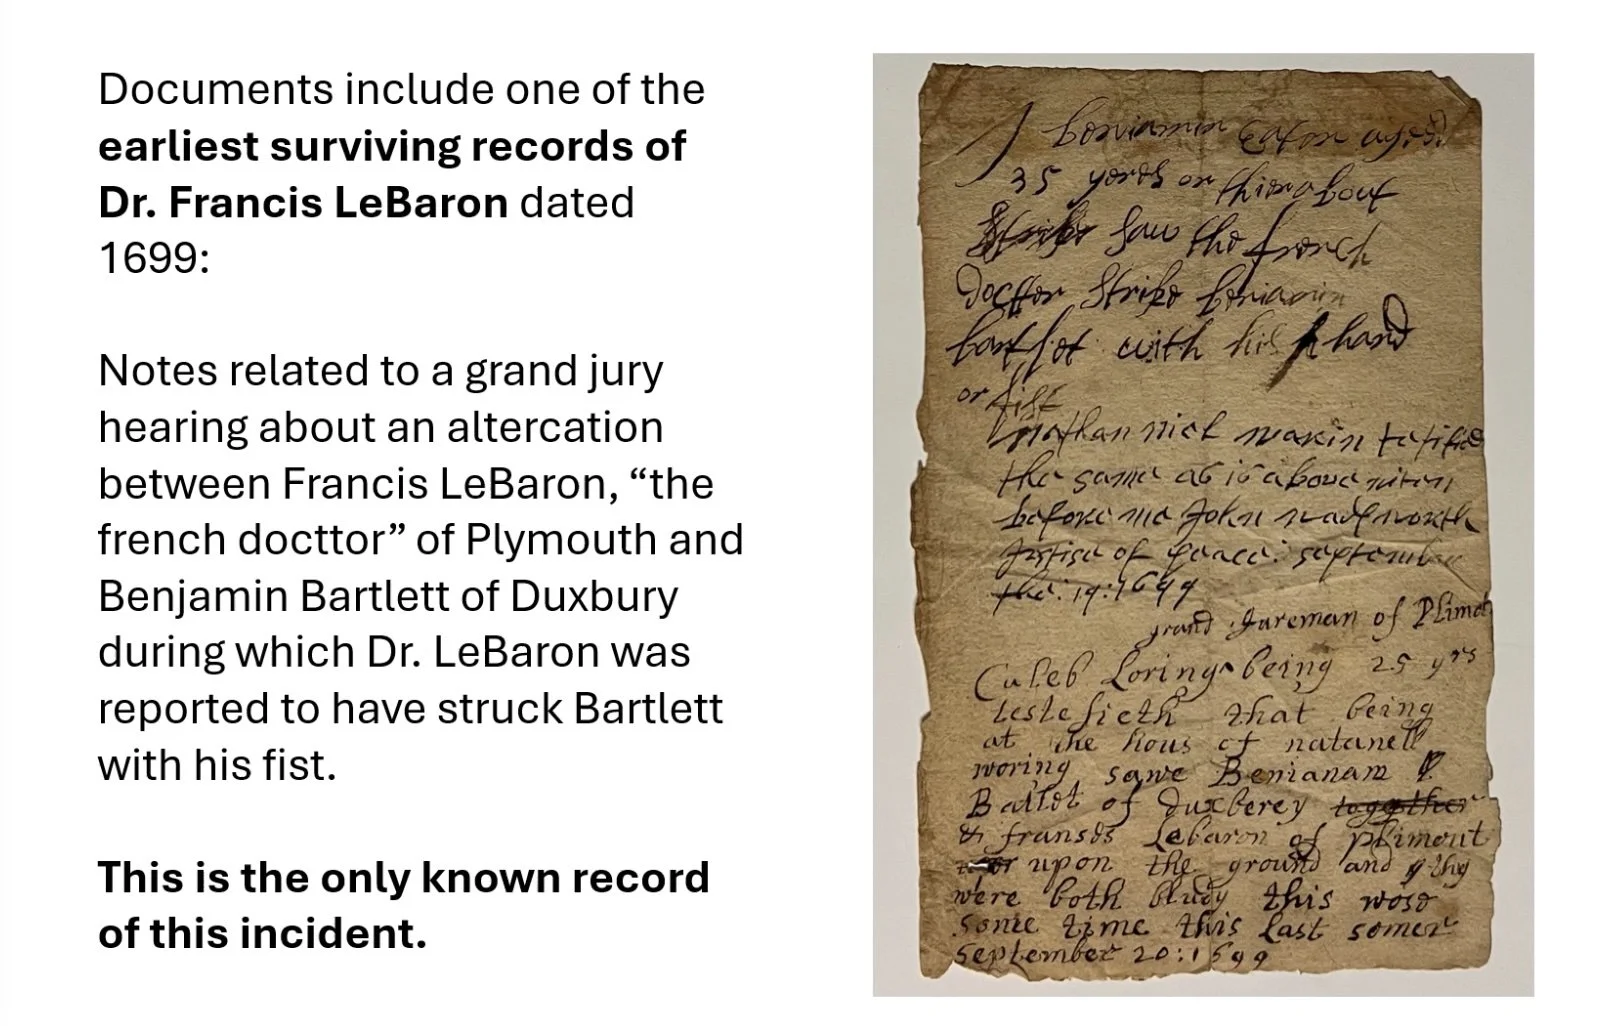 Documents include one of the
earliest surviving records of
Dr. Francis LeBaron dated
1699:
Notes related to a grand jury
hearing about an altercation
between Francis LeBaron, “the
french docttor” of Plymouth and
Benjamin Bartlett of Duxbury
during which Dr. LeBaron was
reported to have struck Bartlett
with his fist.
This is the only known record
of this incident.
I beniamin Eaton aged
35 yeres or thierabout
saw the french
docttor Strike beniamin
bartlet with his hand
or fist
the same as is above
before me John wadsworth
Justise of peace: september
the: 19: 1699
grand Jureman of Plimot
Caleb Loring being 25 yrs
testefieth that being
at the hous of natanell
woring sawe Benianam
Batlot of duxberey together
& franses Lebaron of plimout
upon the ground and they
were both bludy this wose
some time this last somer
September 20: 1699